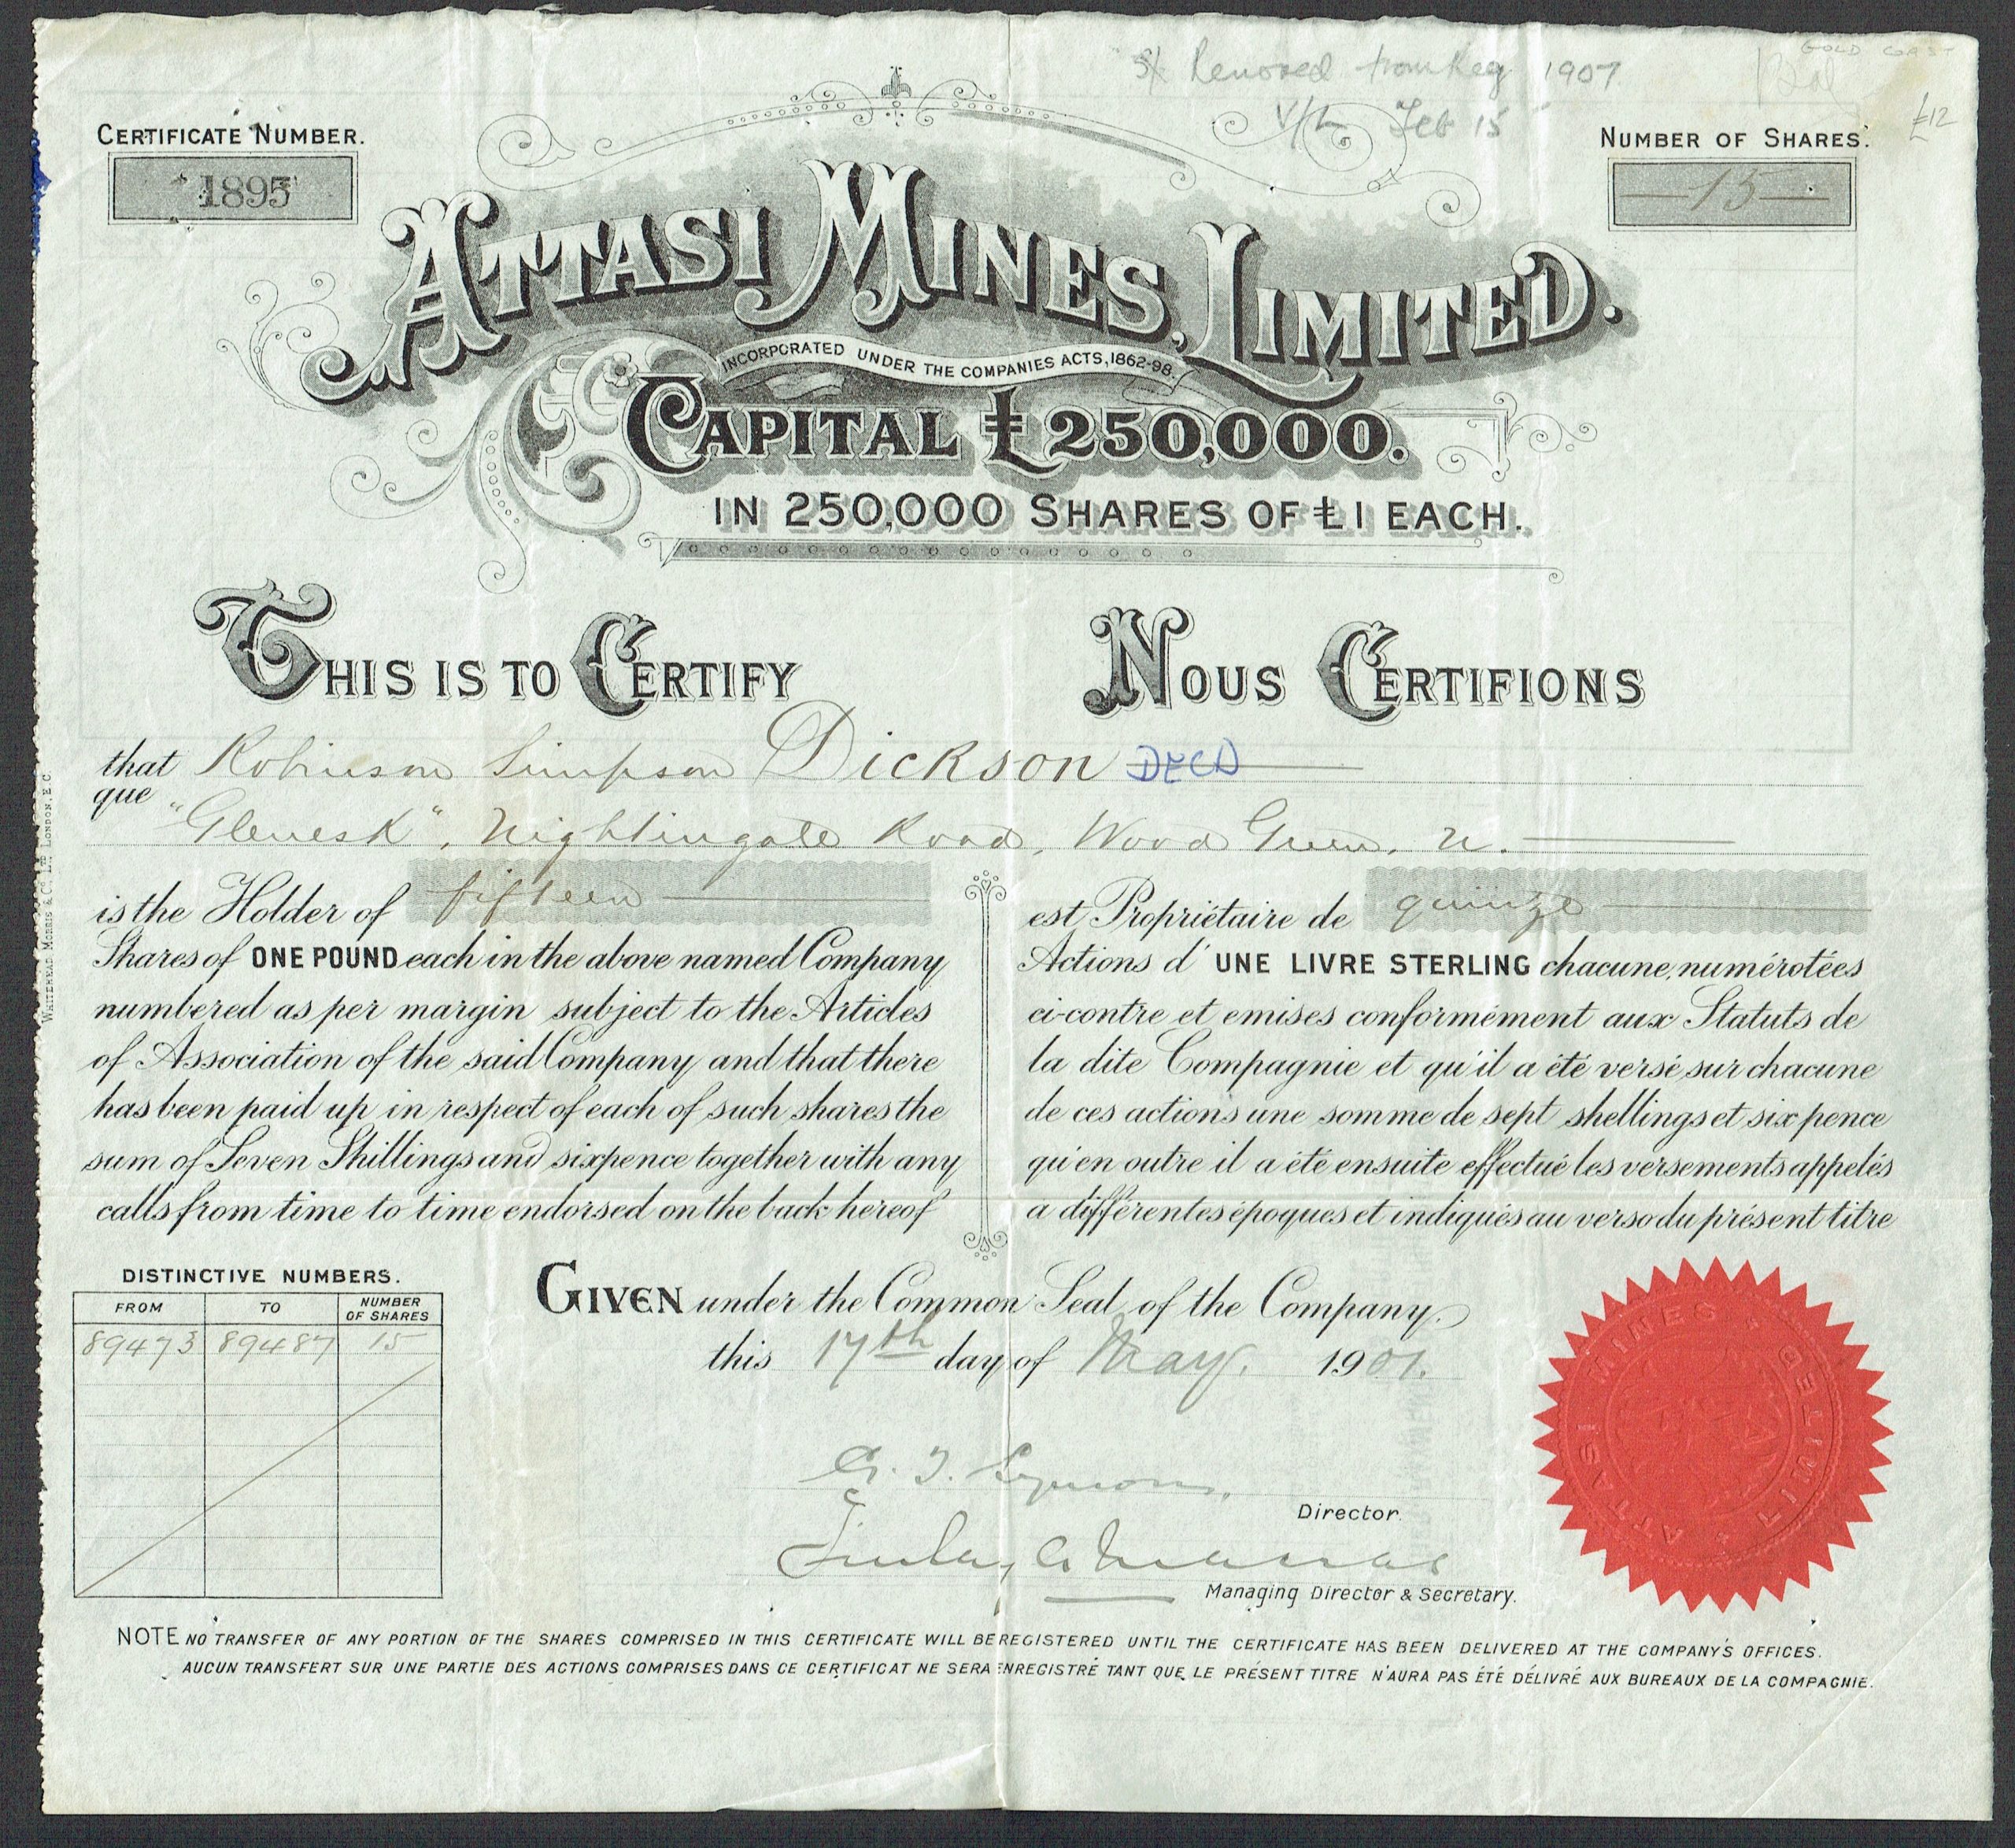 GOLD COAST
Removed from Reg 1907
Feb 15
£12
CERTIFICATE NUMBER.
1895
NUMBER OF SHARES.
15
ATTASI MINES, LIMITED.
INCORPORATED UNDER THE COMPANIES ACTS, 1862-98.
CAPITAL £250,000.
IN 250,000 SHARES OF £1 EACH.
THIS IS TO CERTIFY
NOUS CERTIFIONS
that Robinson Simpson Dickson DECD
que
"Glenesk", Nightingale Road, Wood Green, N.
is the Holder of fifteen
Shares of ONE POUND each in the above named Company
numbered as per margin subject to the Articles
of Association of the said Company and that there
has been paid up in respect of each of such shares the
sum of Seven Shillings and sixpence together with any
calls from time to time endorsed on the back hereof
est Propriétaire de quinze
Actions d' UNE LIVRE STERLING chacune, numérotées
ci-contre et emises conformément aux Statuts de
la dite Compagnie et qu'il a été versé sur chacune
de ces actions une somme de sept shellings et six pence
qu'en outre il a été ensuite effectué les versements appelés
a différentes époques et indiqués au verso du présent titre
DISTINCTIVE NUMBERS.
FROM TO NUMBER OF SHARES
89473 89487 15
GIVEN under the Common Seal of the Company.
this 17th day of May. 1901.
Director.
Managing Director & Secretary.
ATTASI MINES LIMITED
NOTE NO TRANSFER OF ANY PORTION OF THE SHARES COMPRISED IN THIS CERTIFICATE WILL BE REGISTERED UNTIL THE CERTIFICATE HAS BEEN DELIVERED AT THE COMPANY'S OFFICES.
AUCUN TRANSFERT SUR UNE PARTIE DES ACTIONS COMPRISES DANS CE CERTIFICAT NE SERA ENREGISTRÉ TANT QUE LE PRÉSENT TITRE N'AURA PAS ÉTÉ DÉLIVRÉ AUX BUREAUX DE LA COMPAGNIE.
WHITEHEAD MORRIS & CO. LTD LONDON, E.C.